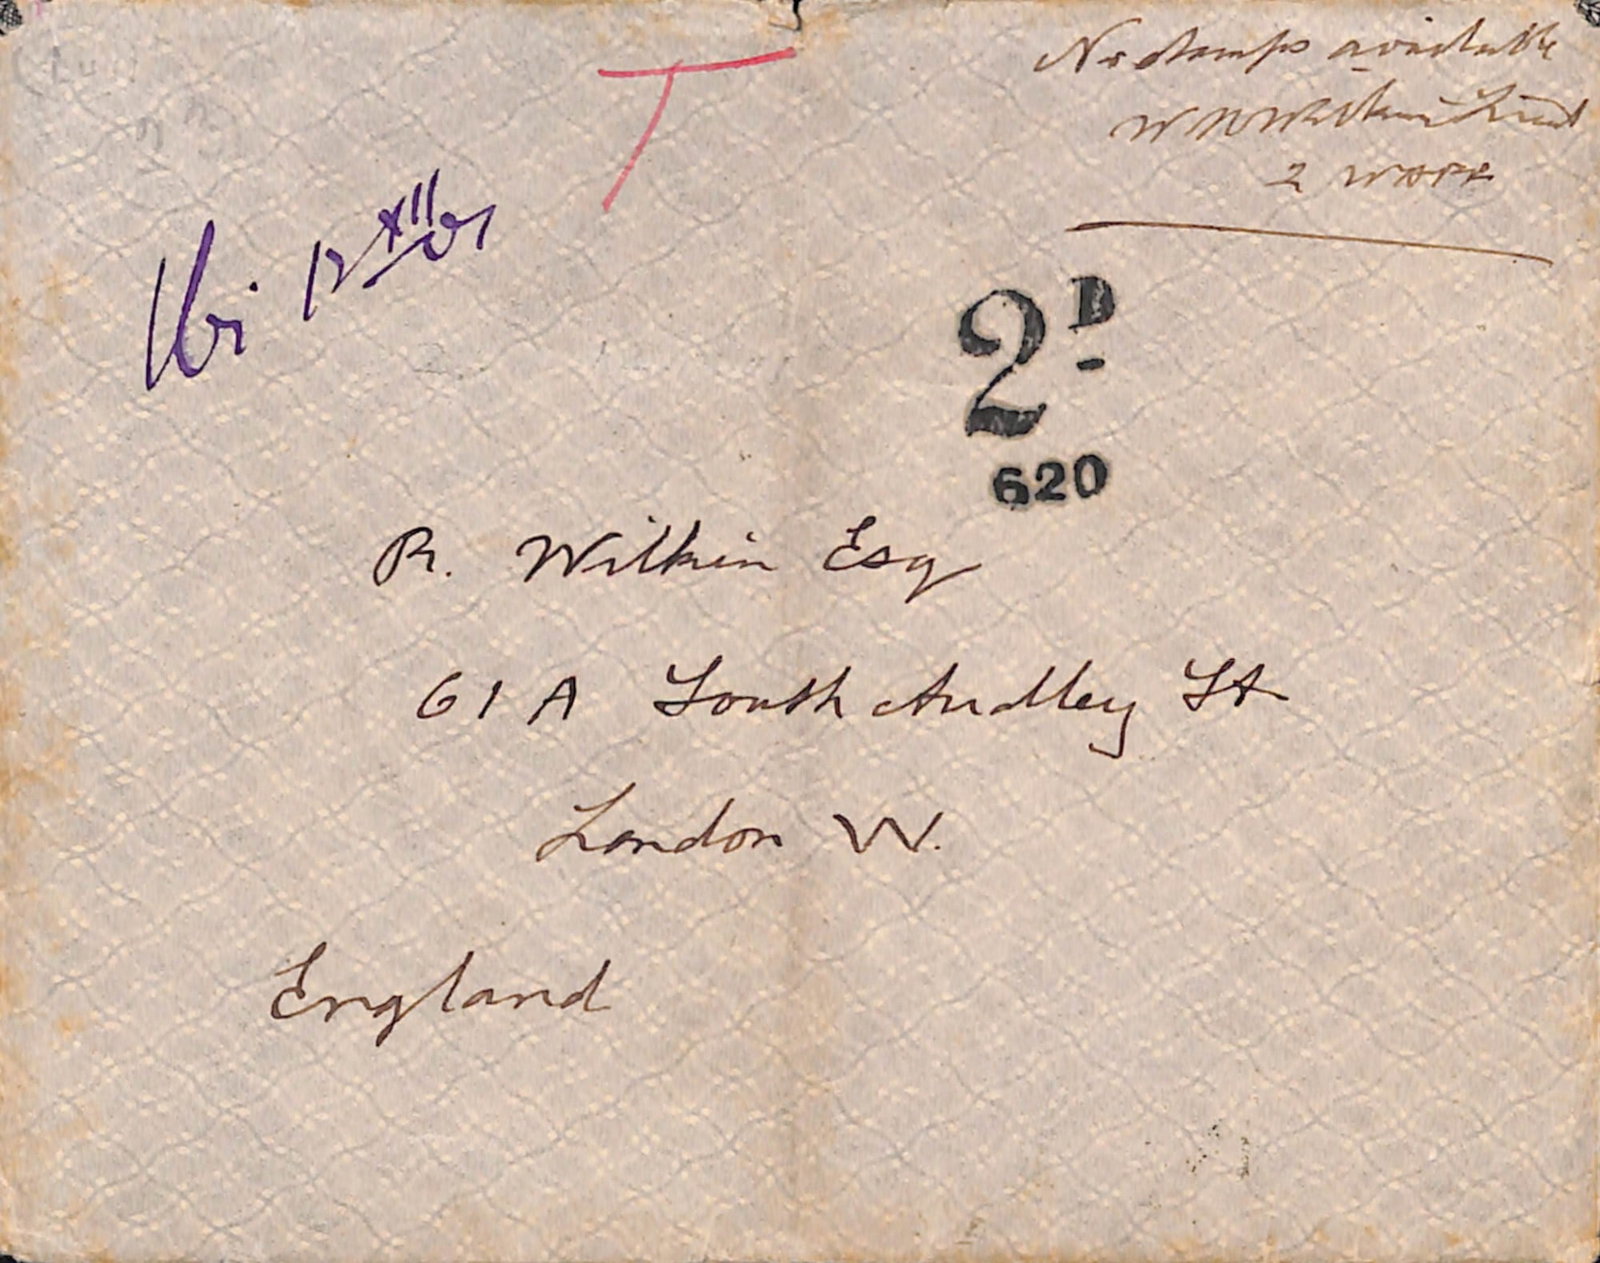 No stamps available
W H Wilkin Lieut
2 WAFF
T
Ibi 12 XII 01
2D
620
R. Wilkin Esq
61 A South Audley St
London W.
England